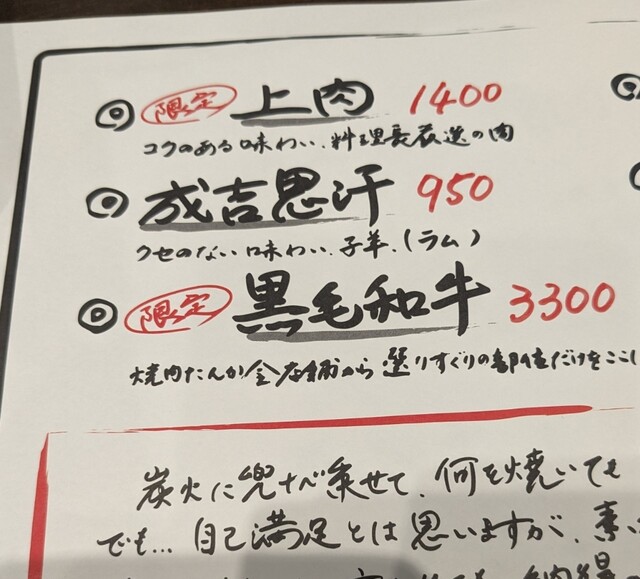 ◎ 限定 上肉 1400
コクのある味わい、料理長厳選の肉
◎ 成吉思汗 950
クセのない味わい、子羊、(ラム)
◎ 限定 黒毛和牛 3300
焼肉たんか全店舗から選りすぐりの部位だけをここし
炭火に兜なべ乗せて、何を焼いても
でも…自己満足とは思いますが、素